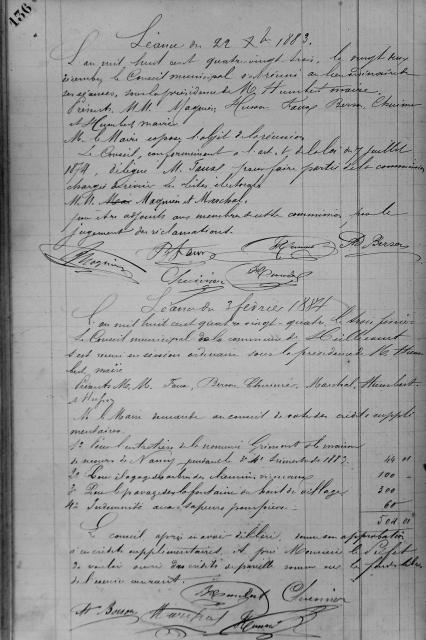 136
Séance du 22 Xbre 1883.
L'an mil huit cent quatre vingt trois, le vingt deux
décembre le Conseil municipal s'est réuni au lieu ordinaire de
ses séances, sous la présidence de M. Humbert maire.
Présents M.M. Maguin, Husson Faux Berson, Chuinier
et Humbert maire
M. le Maire expose l'objet de la réunion
Le Conseil, conformément à l'art. de la loi du 7 juillet
1874, délègue M. Faux pour faire partie de la commission
chargée de réviser les listes électorales
M.M. Maguin et Marchal,
pour être adjoints aux membres de cette commission pour le
jugement des réclamations.
Maguin Faux Husson Berson
Chuinier Humbert
Séance du 3 février 1884
L'an mil huit cent quatre vingt-quatre le trois février
le Conseil municipal de la commune de
s'est réuni en session ordinaire sous la présidence de M. Hum
bert, maire
Présents M.M. Faux, Berson Chuinier, Marchal, Humbert
et
M. le Maire demande au conseil de voter des crédits supplé
mentaires.
1° Pour l'entretien de la nommée Grimont à la maison
de secours de Nancy pendant le 4e trimestre de 1883. 44 01
2° Pour élagage des arbres des chemins vicinaux 100 -
3° Pour le pavage de la fontaine du haut du village 300 -
4° Indemnité aux sapeurs pompiers 60 -
504 01
Le conseil après en avoir délibéré, donne son approbation
à ces crédits supplémentaires, et prie Monsieur le Préfet
de vouloir ouvrir des crédits de pareille somme sur les fonds libres
de l'exercice courant.
Humbert Chuinier
Berson Marchal Husson